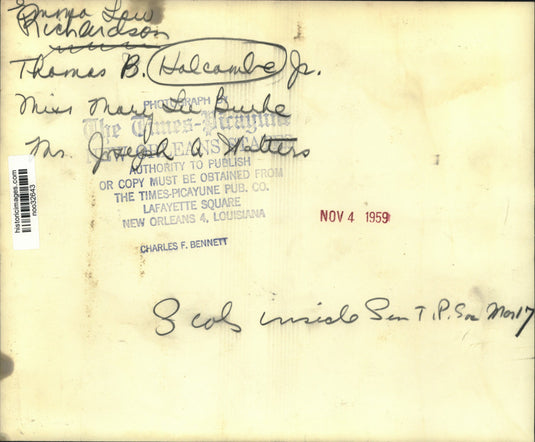 Emma Lou
Richardson
Thomas B. Holcombe Jr.
Miss Mary Lee Burke
Mr. Joseph A. Walters
PHOTOGRAPH BY
The Times-Picayune
NEW ORLEANS STATES
AUTHORITY TO PUBLISH
OR COPY MUST BE OBTAINED FROM
THE TIMES-PICAYUNE PUB. CO.
LAFAYETTE SQUARE
NEW ORLEANS 4, LOUISIANA
CHARLES F. BENNETT
historicimages.com
noo32643
NOV 4 1959
3 cols inside Sun T.P. Soc